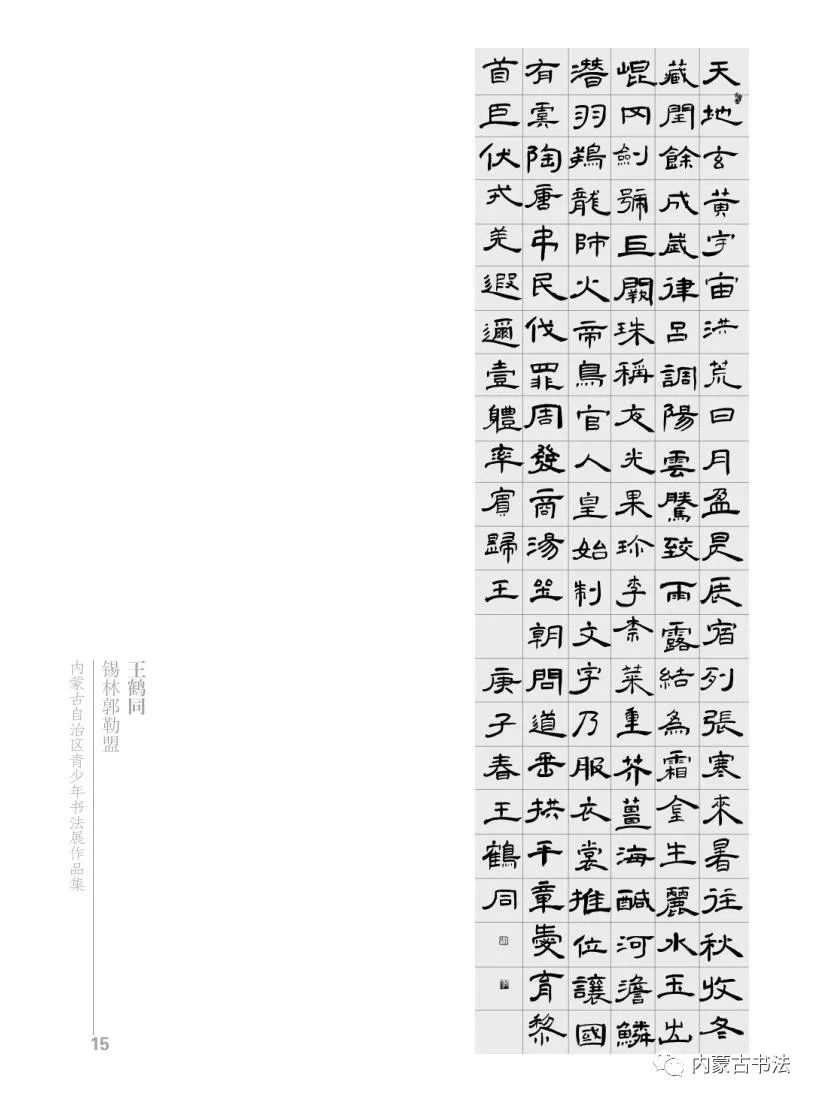 天地玄黃宇宙洪荒日月盈昃辰宿列張寒來暑往秋收冬
藏閏餘成歲律呂調陽雲騰致雨露結為霜金生麗水玉出
崐冈劍號巨闕珠稱夜光果珎李柰菜重芥薑海鹹河澹鱗
潛羽翔龍師火帝鳥官人皇始制文字乃服衣裳推位讓國
有虞陶唐弔民伐罪周發商湯坐朝問道垂拱平章愛育黎
首臣伏戎羌遐邇壹體率賓歸王
庚子春王鶴同
王鹤同
锡林郭勒盟
内蒙古自治区青少年书法展作品集
15
内蒙古书法